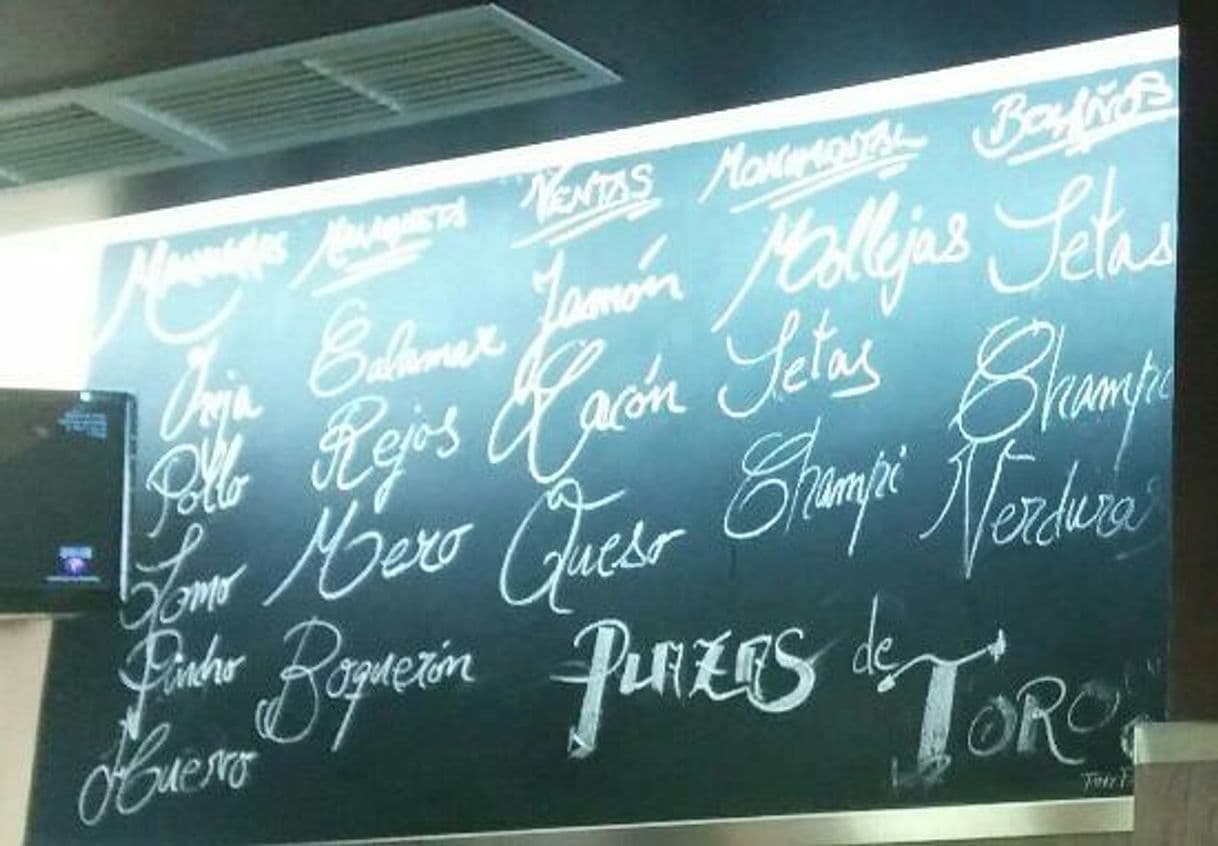 VENTAS
Jamón
Lacón
Queso
MONUMENTAL
Mollejas
Setas
Champi
BOLAÑOS
Setas
Champi
Verduras
Calamar
Rejos
Mero
Boquerón
Oreja
Pollo
Lomo
Pincho
Huevo
PLAZAS de TOROS